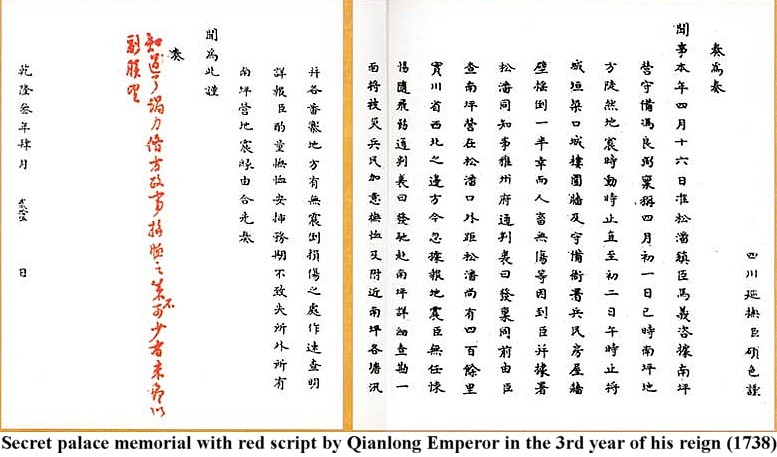 四川巡撫臣碩色謹
奏為奏
聞事本年四月十六日准松潘鎮臣馬義咨據南坪
營守備馮良弼稟稱四月初一日巳時南坪地
方陡然地震時動時止直至初二日午時止將
城垣垜口城樓圍牆及守備衙署兵民房屋牆
壁搖倒一半幸而人畜無傷等因到臣并據署
松潘同知事雅州府通判袁曰發稟同前由臣
查南坪營在松潘口外距松潘尚有四百餘里
實川省西北之邊方今忽據報地震臣無任悚
惕隨飛飭通判袁曰發馳赴南坪詳細查勘一
面將被災兵民加意撫恤又附近南坪各塘汛
并各番寨地方有無震倒損傷之處作速查明
詳報臣酌量撫恤安插務期不致失所外所有
南坪營地震緣由合先奏
聞為此謹
奏
知道了竭力之策不可少者以
副朕望
乾隆叁年肆月 日
Secret palace memorial with red script by Qianlong Emperor in the 3rd year of his reign (1738)